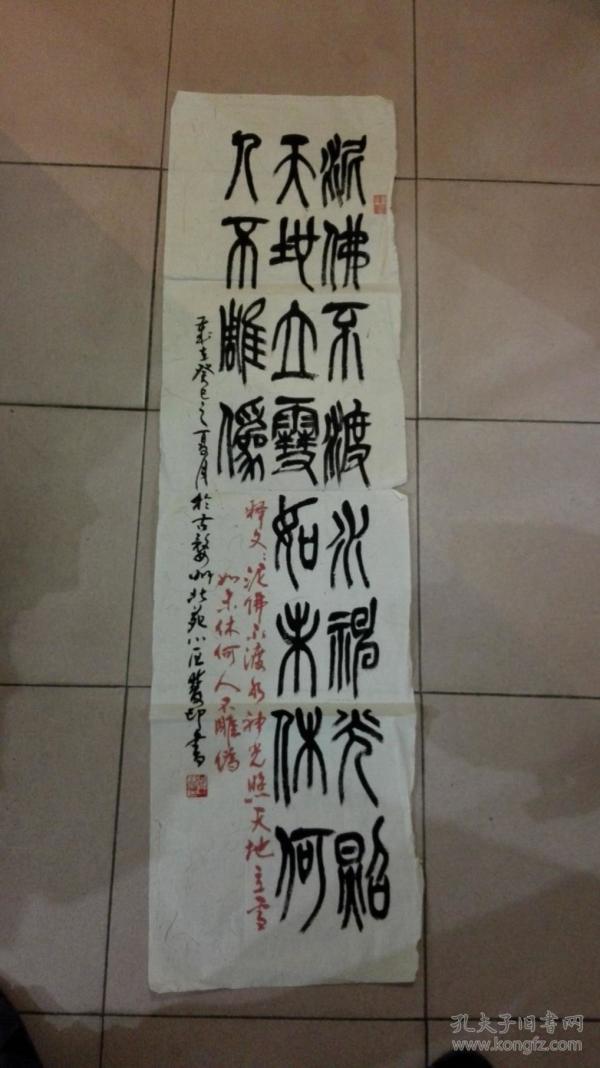 泥佛不渡水神光照
天地立雪如未休何
人不雕偽
释文：泥佛不渡水神光照天地立雪
如未休何人不雕偽
癸巳之夏月於古婺州北苑小区
孔夫子旧书网
www.kongfz.com